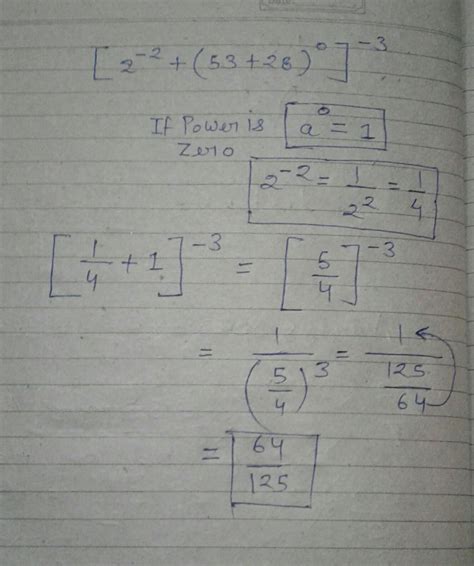 [2⁻² + (53+28)⁰]⁻³
If Power is a⁰ = 1
Zero
2⁻² = 1/2² = 1/4
[1/4 + 1]⁻³ = [5/4]⁻³
= 1/(5/4)³ = 1/(125/64)
= 64/125